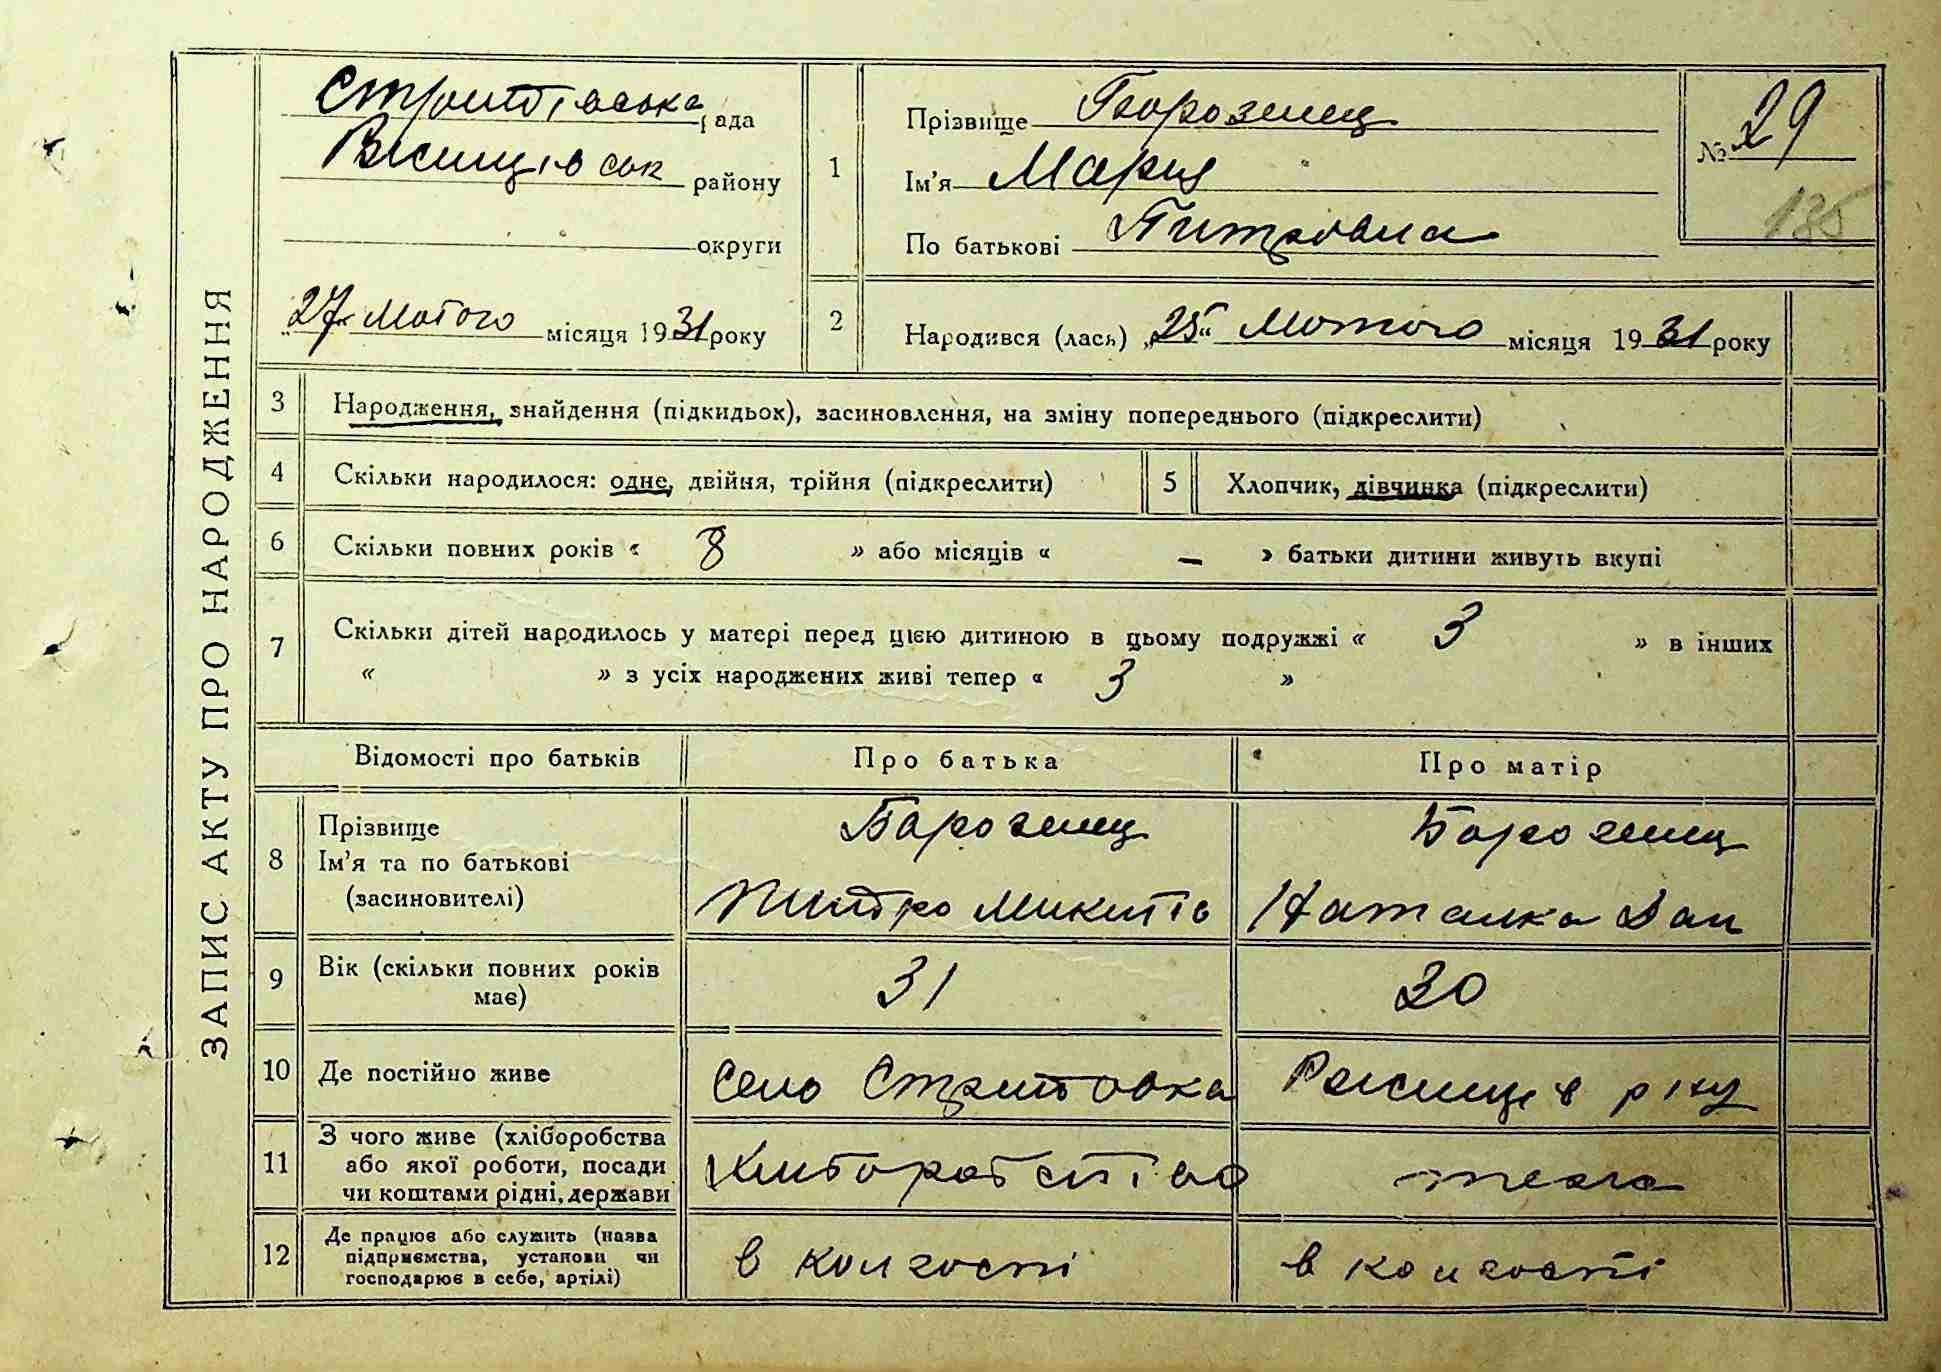 ЗАПИС АКТУ ПРО НАРОДЖЕННЯ
рада
району
округи
"27" Лютого місяця 1931 року
1 Прізвище Борозенец
Ім'я Мария
По батькові Питровна
№ 29
135
2 Народився (лась) „25“ Лютого місяця 1931 року
3 Народження, знайдення (підкидьок), засиновлення, на зміну попереднього (підкреслити)
4 Скільки народилося: одне, двійня, трійня (підкреслити) 5 Хлопчик, дівчинка (підкреслити)
6 Скільки повних років « 8 » або місяців « – » батьки дитини живуть вкупі
7 Скільки дітей народилось у матері перед цією дитиною в цьому подружжі « 3 » в інших
« » з усіх народжених живі тепер « 3 »
Відомості про батьків Про батька Про матір
8 Прізвище
Ім'я та по батькові
(засиновителі)
Борозенец
Питро Микитів
Борозенец
Наталка Дан
9 Вік (скільки повних років
має)
31 30
10 Де постійно живе Село Стритовка
11 З чого живе (хліборобства
або якої роботи, посади
чи коштами рідні, держави
Хлиборобство
12 Де працює або служить (назва
підприємства, установи чи
господарює в себе, артілі)
в колгоспі в колгоспі